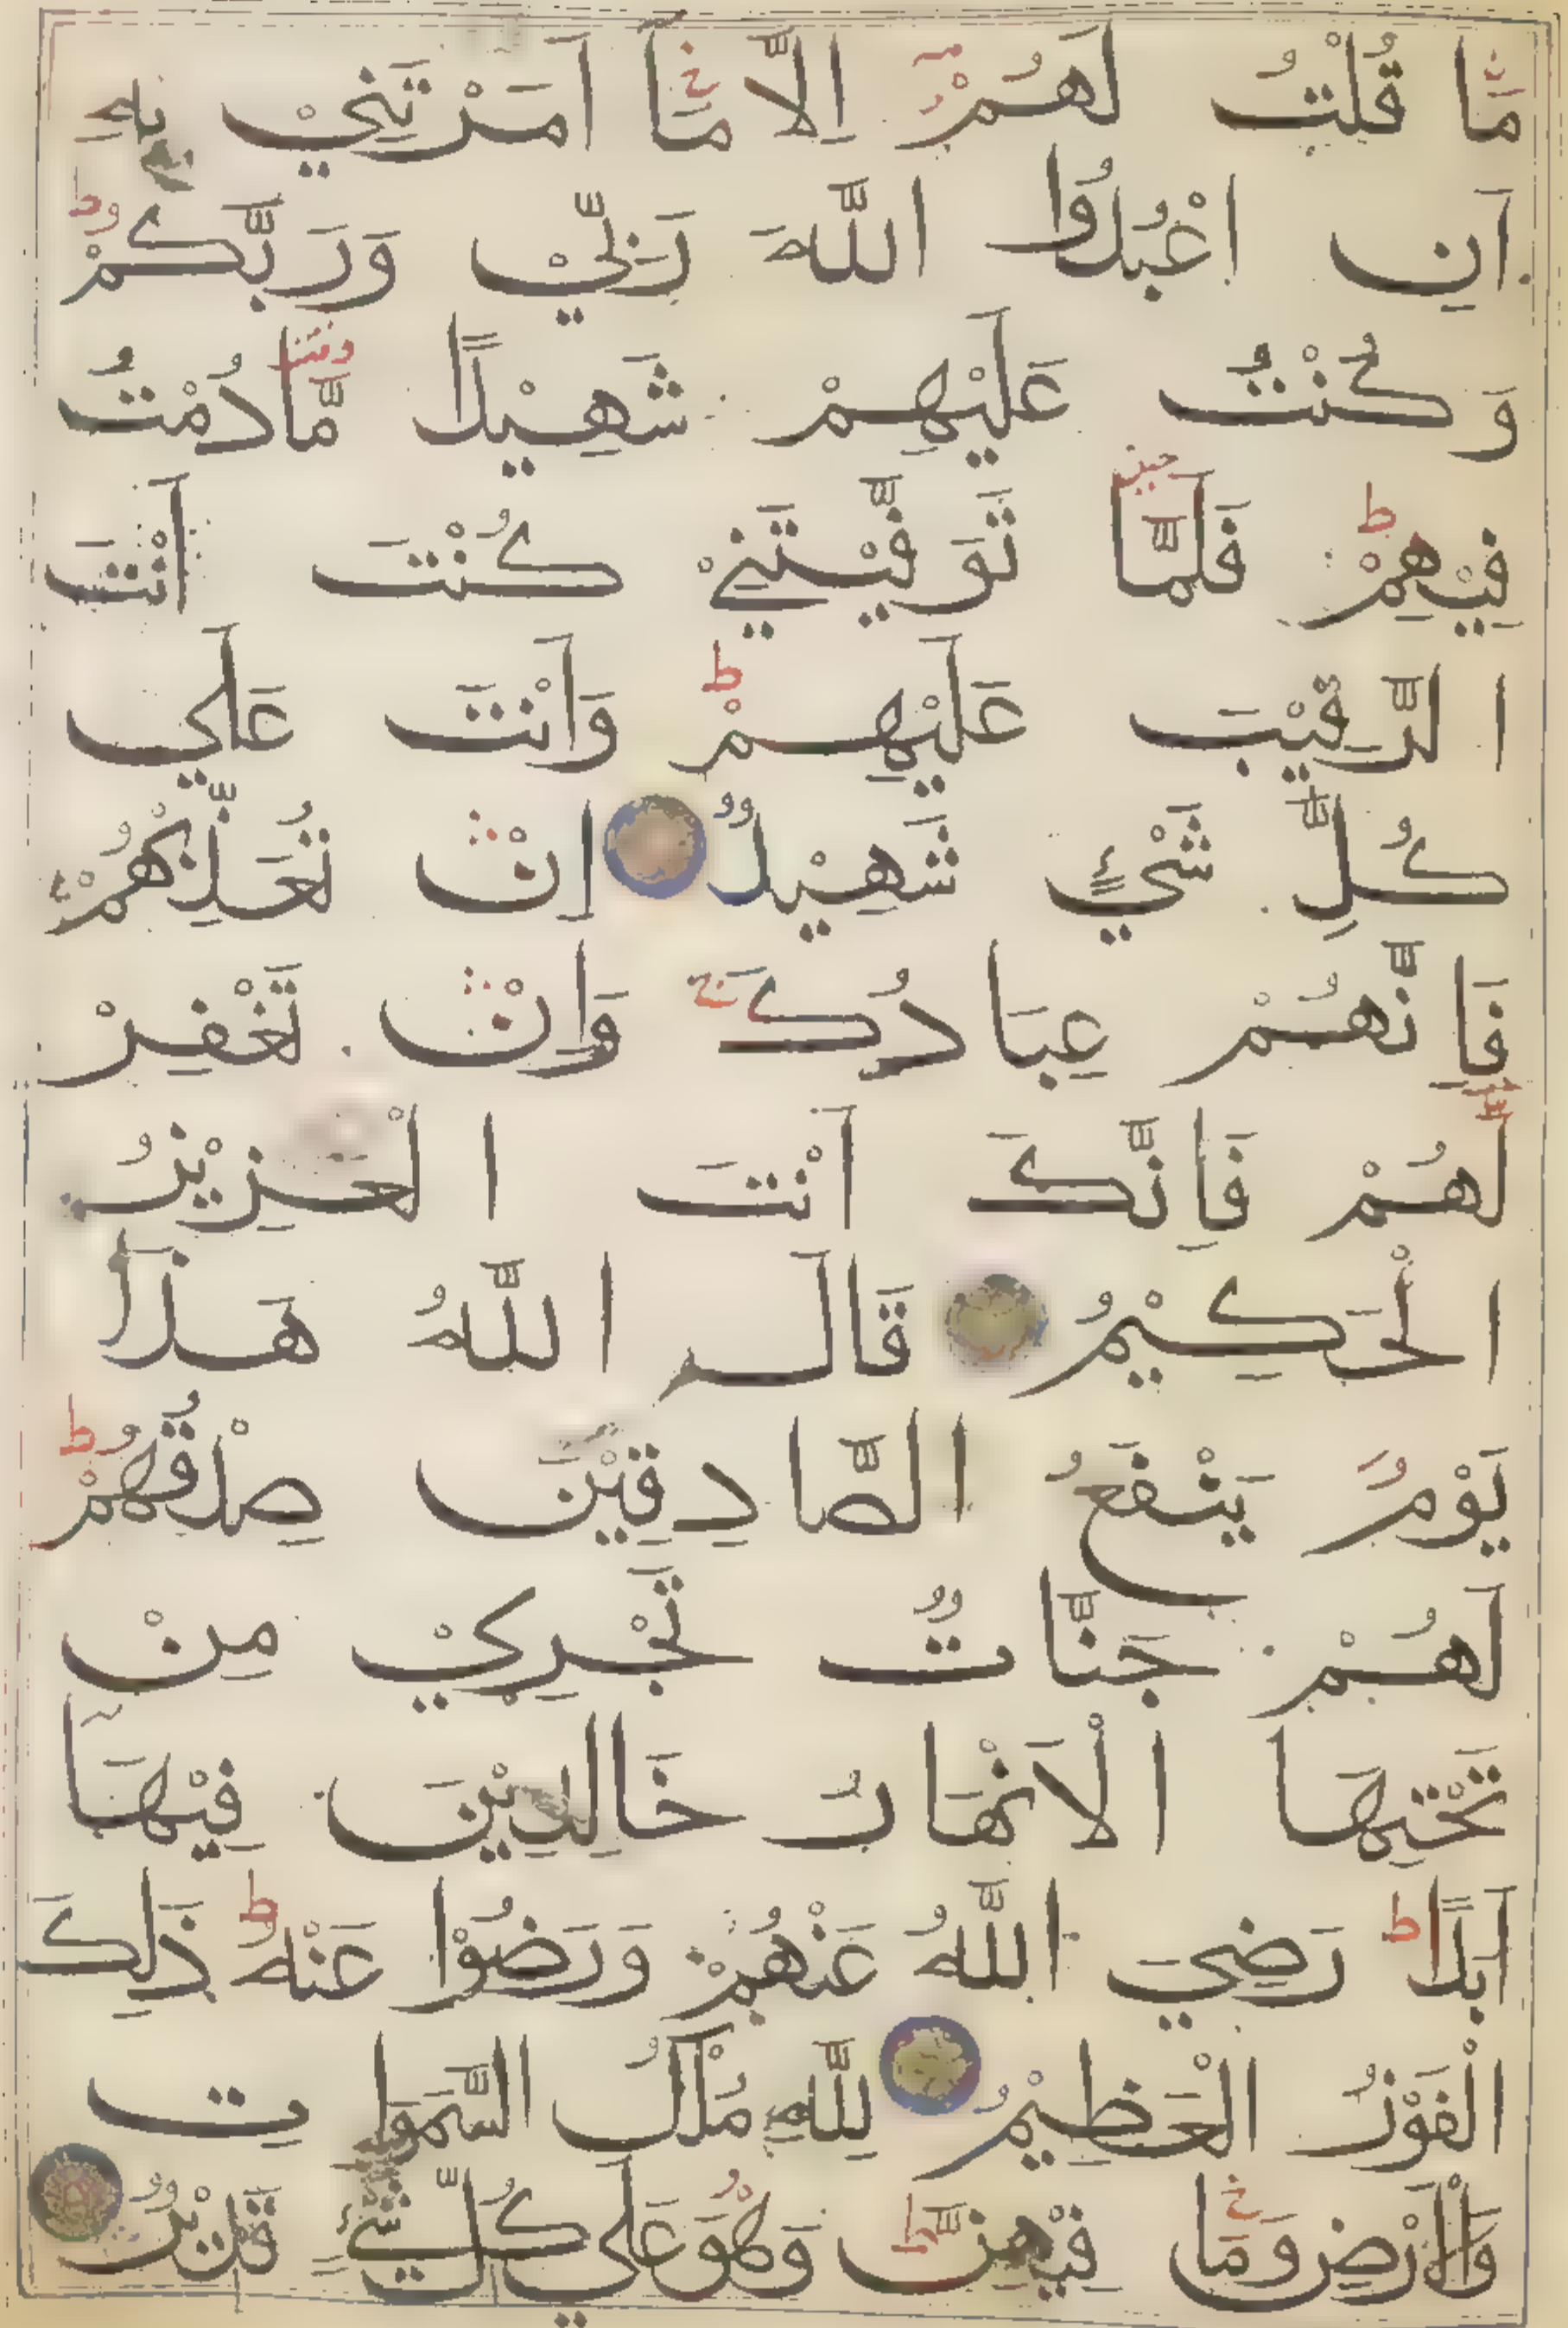 مَا قُلْتُ لَهُمْ اِلَّا مَا اَمَرْتَنِيْ بِهِ
اَنِ اعْبُدُوا اللّٰهَ رَبِّيْ وَرَبَّكُمْ
وَكُنْتُ عَلَيْهِمْ شَهِيْدًا مَّا دُمْتُ
فِيْهِمْ فَلَمَّا تَوَفَّيْتَنِيْ كُنْتَ اَنْتَ
الرَّقِيْبَ عَلَيْهِمْ وَاَنْتَ عَلَي
كُلِّ شَيْءٍ شَهِيْدٌ اِنْ تُعَذِّبْهُمْ
فَاِنَّهُمْ عِبَادُكَ وَاِنْ تَغْفِرْ
لَهُمْ فَاِنَّكَ اَنْتَ الْعَزِيْزُ
الْحَكِيْمُ قَالَ اللّٰهُ هَذَا
يَوْمُ يَنْفَعُ الصَّادِقِيْنَ صِدْقُهُمْ
لَهُمْ جَنَّاتٌ تَجْرِيْ مِنْ
تَحْتِهَا الْاَنْهَارُ خَالِدِيْنَ فِيْهَا
اَبَدًا رَضِيَ اللّٰهُ عَنْهُمْ وَرَضُوْا عَنْهُ ذَلِكَ
الْفَوْزُ الْعَظِيْمُ لِلّٰهِ مُلْكُ السَّمَوَاتِ
وَالْاَرْضِ وَمَا فِيْهِنَّ وَهُوَ عَلَي كُلِّ شَيْءٍ قَدِيْرٌ